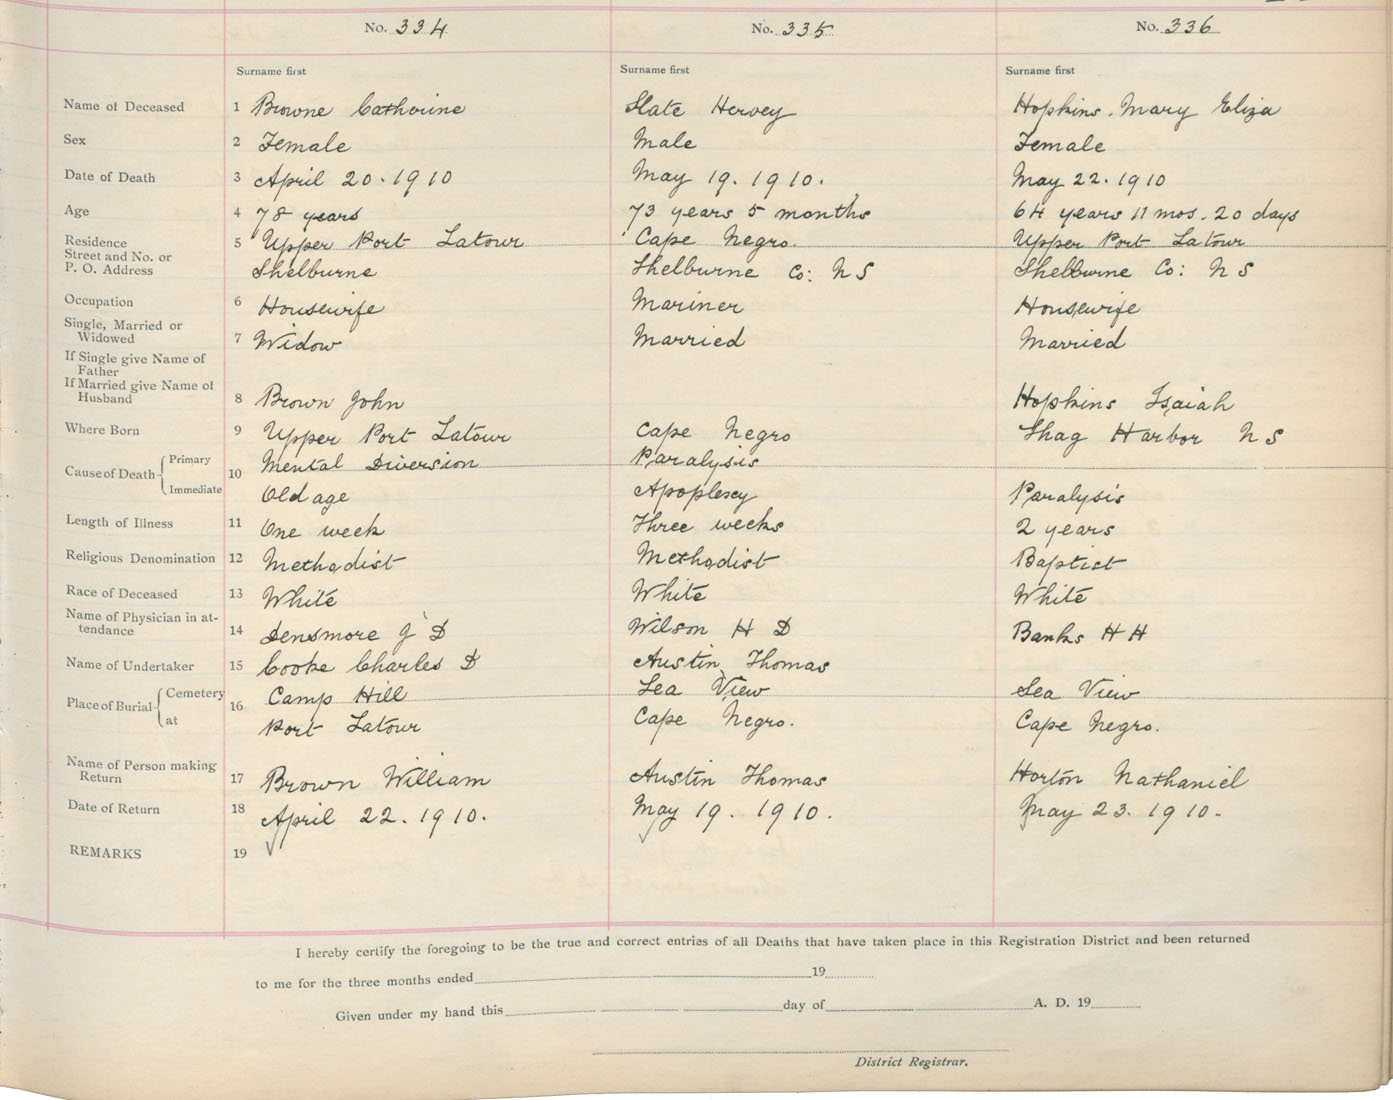 No. 334 No. 335 No. 336
Surname first Surname first Surname first
Name of Deceased 1 Browne Catherine Slate Hervey Hopkins. Mary Eliza
Sex 2 Female Male Female
Date of Death 3 April 20. 1910 May 19. 1910. May 22. 1910
Age 4 78 years 73 years 5 months 64 years 11 mos. 20 days
Residence 5 Upper Port Latour Cape Negro. Upper Port Latour
Street and No. or
P. O. Address Shelburne Shelburne Co: N S Shelburne Co: N S
Occupation 6 Housewife Mariner Housewife
Single, Married or
Widowed 7 Widow Married Married
If Single give Name of
Father
If Married give Name of
Husband 8 Brown John Hopkins Isaiah
Where Born 9 Upper Port Latour Cape Negro Shag Harbor N S
Cause of Death Primary 10 Mental Diversion Paralysis
Immediate Old age Apoplexy Paralysis
Length of Illness 11 One week Three weeks 2 years
Religious Denomination 12 Methodist Methodist Baptist
Race of Deceased 13 White White White
Name of Physician in at-
tendance 14 Densmore J D Wilson H D Banks H H
Name of Undertaker 15 Cooke Charles D Austin Thomas
Place of Burial Cemetery 16 Camp Hill Sea View Sea View
at Port Latour Cape Negro. Cape Negro.
Name of Person making
Return 17 Brown William Austin Thomas Horton Nathaniel
Date of Return 18 April 22. 1910. May 19. 1910. May 23. 1910.
REMARKS 19
I hereby certify the foregoing to be the true and correct entries of all Deaths that have taken place in this Registration District and been returned
to me for the three months ended 19
Given under my hand this day of A. D. 19
District Registrar.